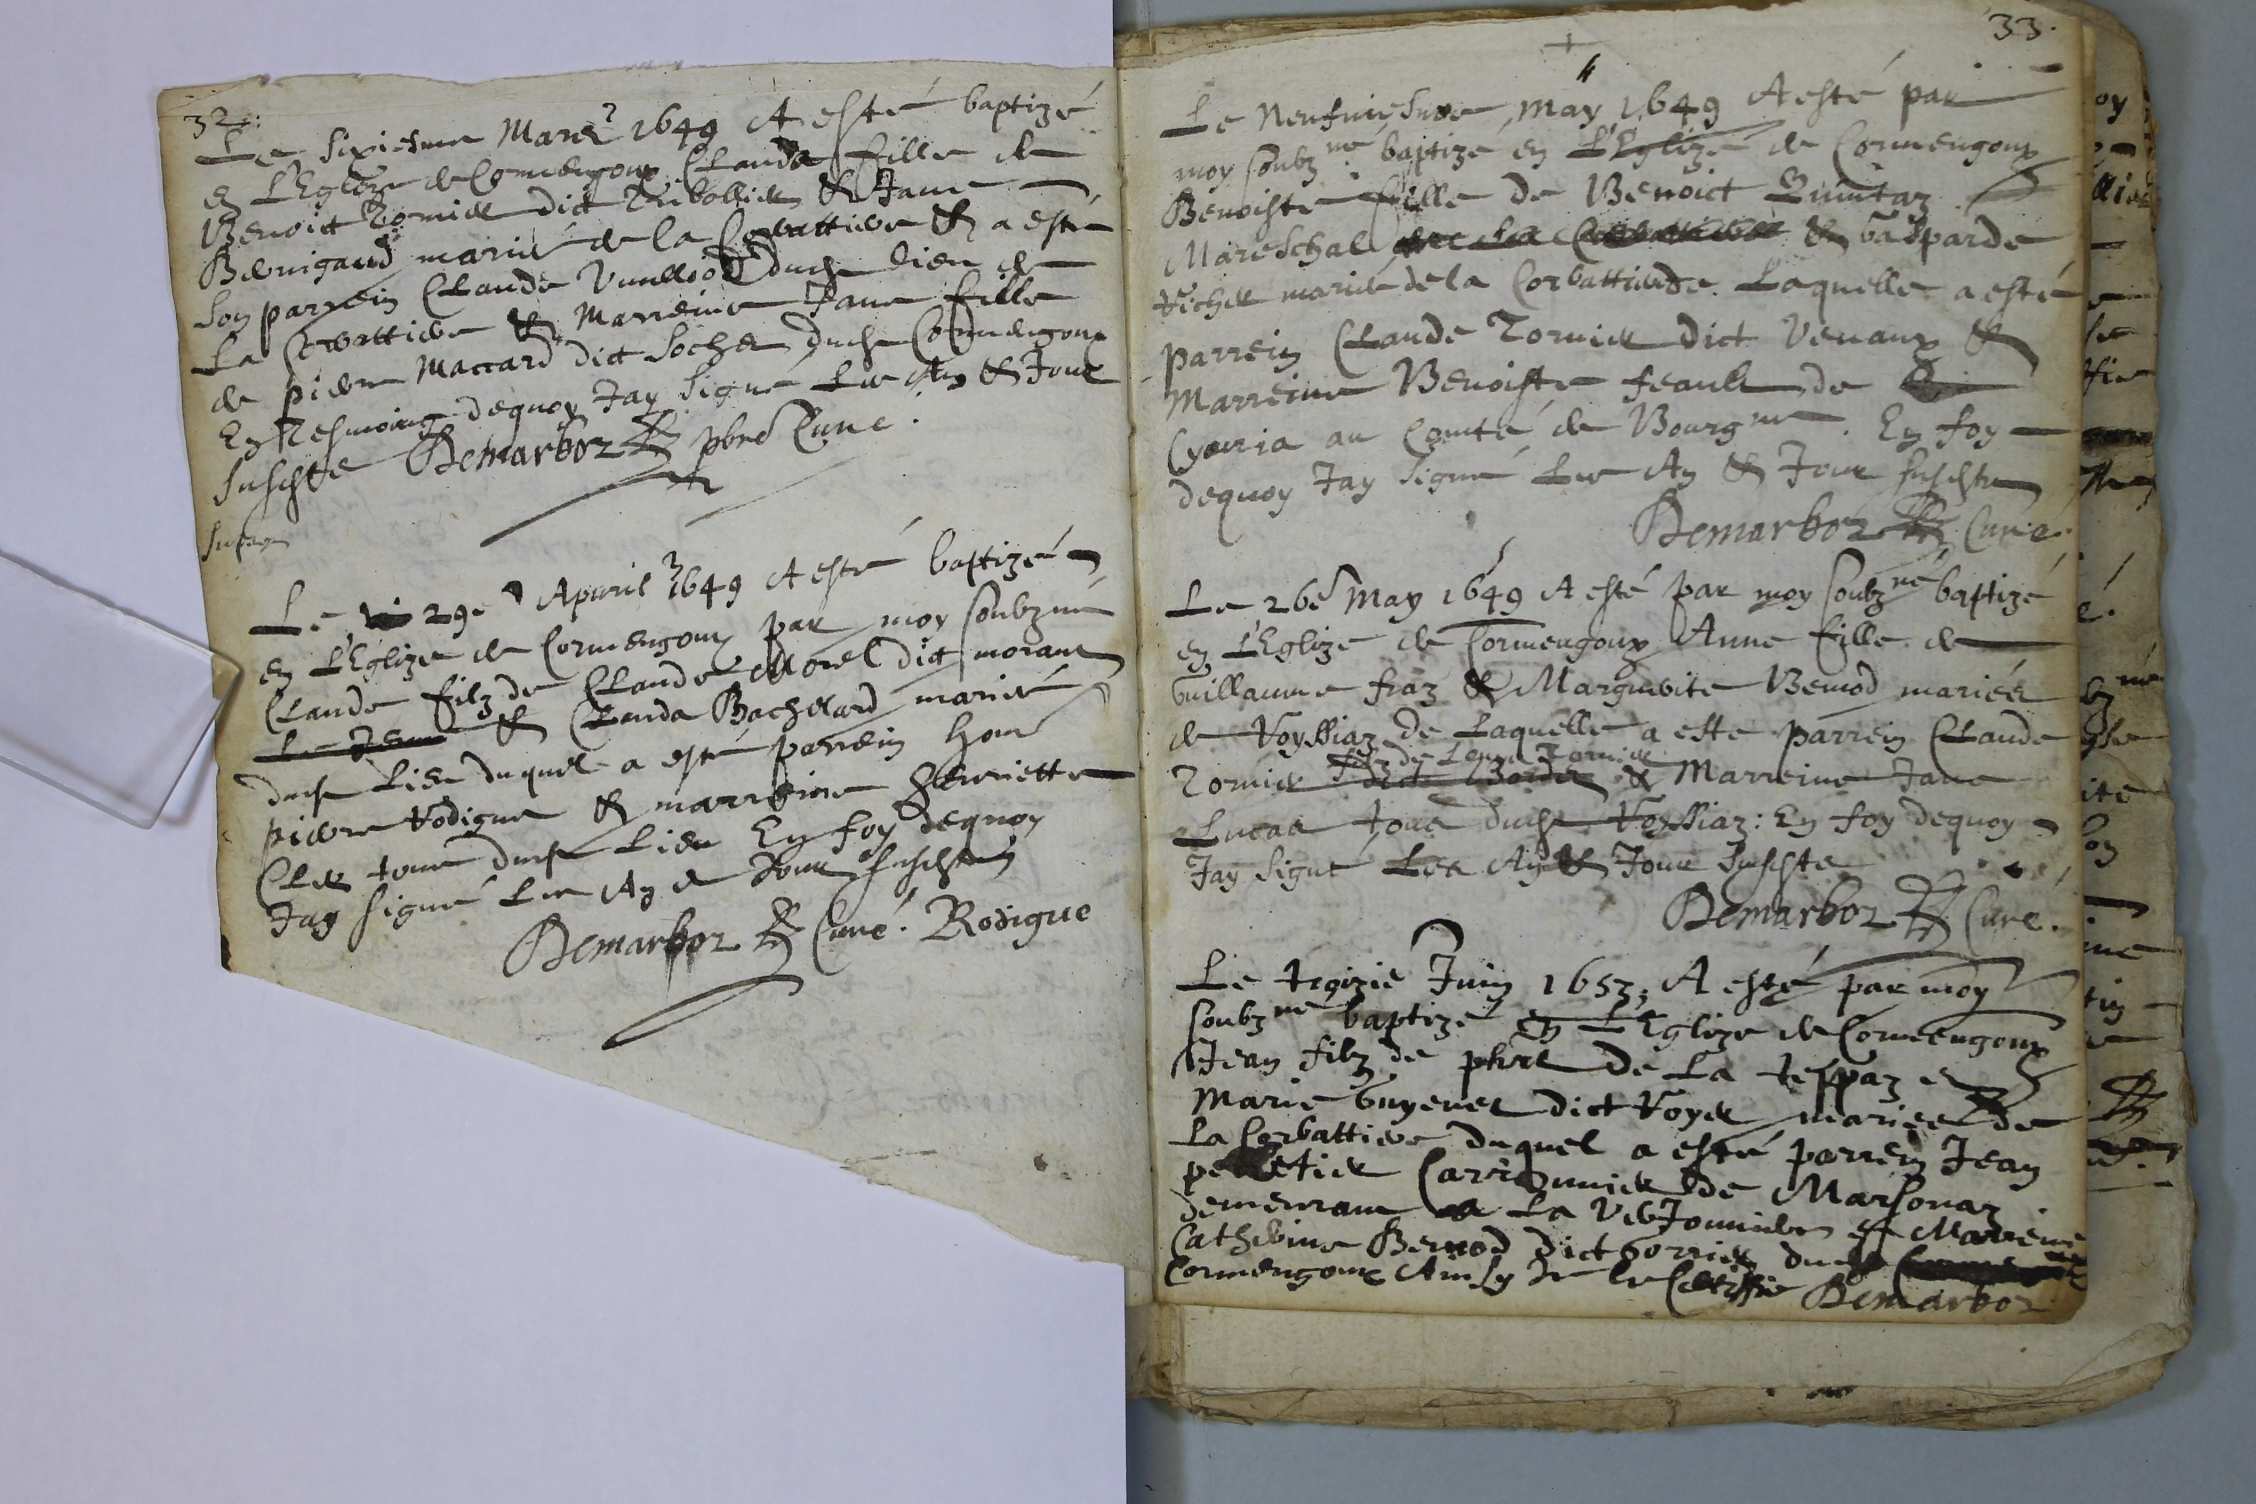 32.
Le sixiesme Mars 1649 A esté baptizé
en L'Eglize de Cormengoux Clauda fille de
Benoict Tornier dict Triballier & Jane
mariés de la Corbattiere & a esté
Son parrein Claude Vuilliod dudt lieu de
La Corbattiere & Marreine Jane fille
de pierre Maccard dict Sochet dudt Cormengoux
En Tesmoing dequoy Jay Signé Les An & Jour
Susdste Demarboz pbre Curé.
Le 29e Apuril 1649 A esté baptizé
en L'Eglize de Cormengoux par moy soubzné
Claude filz de Claude Morel dict morant
& Clauda Bachelard mariés
dudt Lieu duquel a esté parrein hon
pierre Rodigue & marreine Henriette
dudt Lieu En foy dequoy
Jay signé Les An & Jour susdste
Demarboz Curé. Rodigue
33.
Le Neufuiesme May 1649 A esté par
moy soubzné baptizé en L'Eglize de Cormengoux
Benoiste fille de Benoict Quintaz
Mareschal & Gasparde
mariés de la Corbattiere. Laquelle a esté
parrein Claude Tornier dict Venaux &
Marreine Benoiste feault de
Cyonia au Comté de Bourgne. En foy
dequoy Jay Signé Les An & Jour susdste
Demarboz Curé.
Le 26e May 1649 A esté par moy soubzné baptizé
en L'Eglize de Cormengoux Anne fille de
Guillaume fraz & Marguerite Bernod mariés
de Royssiaz de Laquelle a este parrein Claude
filz de Tornier
Tornier & Marreine Jane
Lucas dudt Royssiaz: En foy dequoy
Jay Signé Les An & Jour Susdste
Demarboz Curé.
Le tréizie Juin 1653, A esté par moy
soubzné baptizé En L'Eglize de Cormengoux
Jean filz de phret de La teppaz et
Marie Guyenet dict Royer mariés de
La Corbattiere duquel a esté parrein Jean
pelletier Carronnier de Marsonaz
demeurant a La & Marreine
Catherine Bernod dict Gorrier dudt
Cormengoux Ainsy Je le Certiffie Demarboz